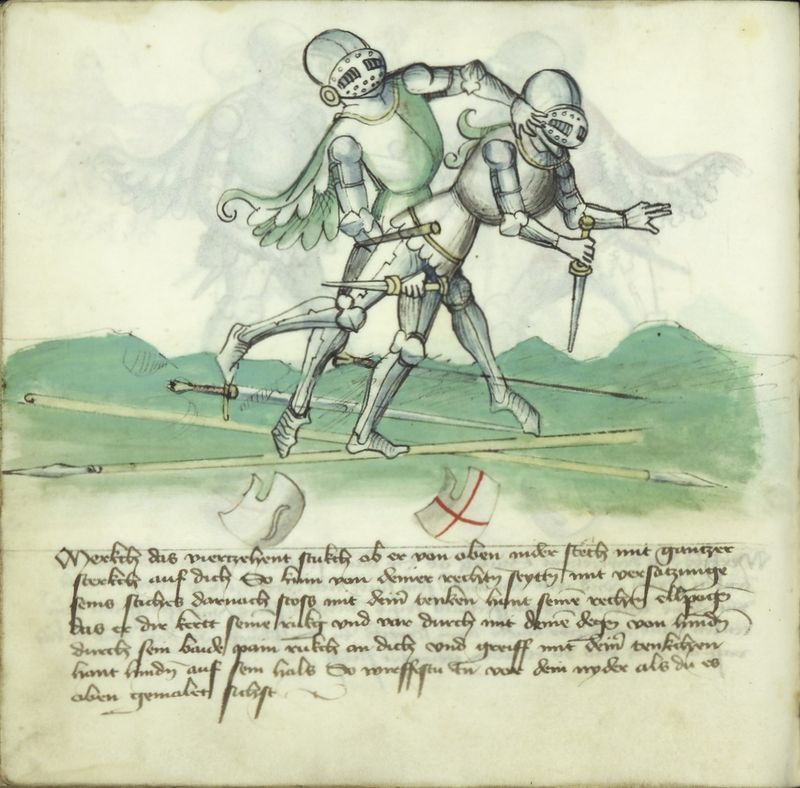 Merkch das viertzehent stukch ob er von oben nider stech mit gantzer
sterkch auf dich So kum von deiner rechtn seyttn mit versatzunge
seins stiches darnach stoss mit deiner tenken hant seinē rechtn ellpogn
das er dir kert seinē rukg vnd var durch mit deinē degn von hindn
durch sein baide pain rukch an dich vnd greiff mit deinˀ tenkchen
hant hindn auf sein hals So wirffstu In vor dein nyder als du es
oben gemalet sichst